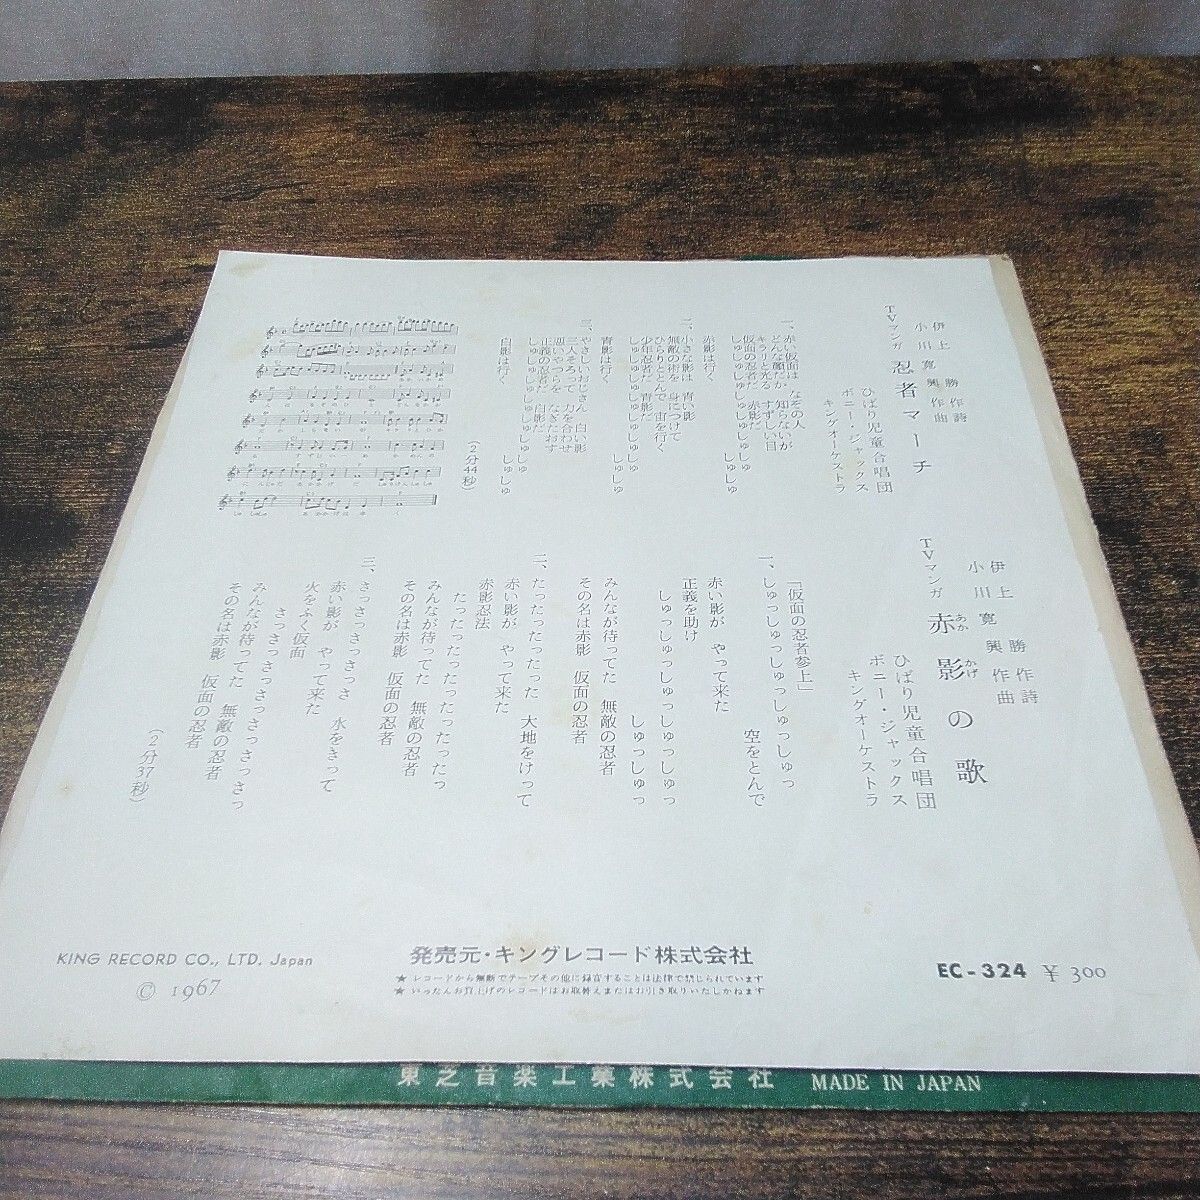 TVマンガ
忍者マーチ
伊上 勝 作詩
小川寛興 作曲
ひばり児童合唱団
ボニー・ジャックス
キングオーケストラ
一、赤い仮面は なぞの人
どんな顔だか 知らないが
キラリと光る すずしい目
仮面の忍者だ 赤影だ
しゅしゅしゅしゅしゅしゅしゅ
しゅしゅ
赤影は行く
二、小さな影は 青い影
無敵の術を 身につけて
ひらりととんで 宙を行く
少年忍者だ 青影だ
しゅしゅしゅしゅしゅしゅしゅ
しゅしゅ
青影は行く
三、やさしいおじさん 白い影
三人そろって 力を合わせ
悪いやつらを なぎたおす
正義の忍者だ 白影だ
しゅしゅしゅしゅしゅしゅしゅ
しゅしゅ
白影は行く
(2分44秒)
TVマンガ
赤影の歌
あか かげ
伊上 勝 作詩
小川寛興 作曲
ひばり児童合唱団
ボニー・ジャックス
キングオーケストラ
「仮面の忍者参上」
一、しゅっしゅっしゅっしゅっしゅっ
空をとんで
赤い影が やって来た
正義を助け
しゅっしゅっしゅっしゅっしゅっ
しゅっしゅっ
みんなが待ってた 無敵の忍者
その名は赤影 仮面の忍者
二、たったったったった 大地をけって
赤い影が やって来た
赤影忍法
たったったったったったったっ
みんなが待ってた 無敵の忍者
その名は赤影 仮面の忍者
三、さっさっさっさっさ 水をきって
赤い影が やって来た
火をふく仮面
さっさっさっさっさっさっさっ
みんなが待ってた 無敵の忍者
その名は赤影 仮面の忍者
(2分37秒)
KING RECORD CO., LTD. Japan
© 1967
発売元・キングレコード株式会社
★ レコードから無断でテープその他に録音することは法律で禁じられています
★ いったんお買上げのレコードはお取替えまたはお引き取りいたしかねます
EC-324 ¥300
東芝音楽工業株式会社 MADE IN JAPAN